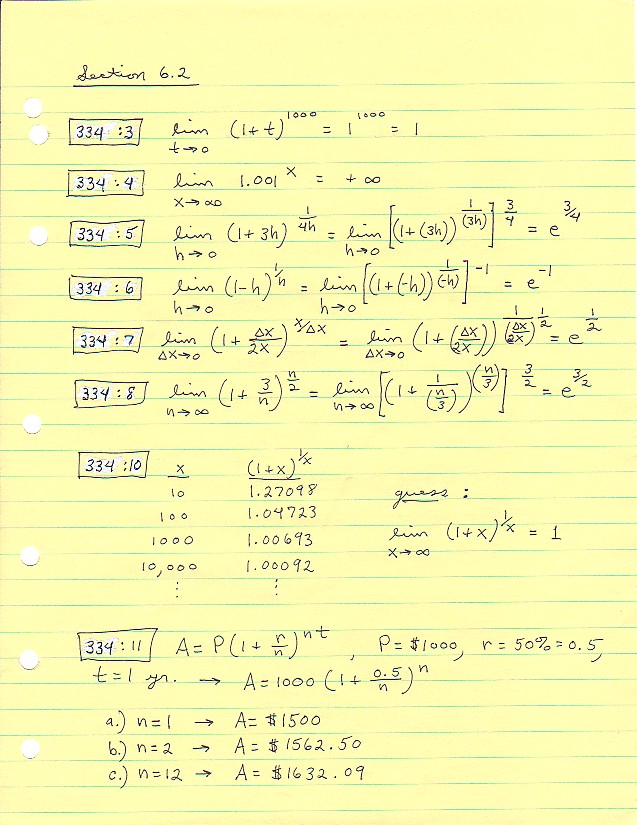 Section 6.2
334:3 lim t→0 (1+t)^1000 = 1^1000 = 1
334:4 lim x→∞ 1.001^x = +∞
334:5 lim h→0 (1+3h)^(1/4h) = lim h→0 [(1+(3h))^(1/(3h))]^(3/4) = e^(3/4)
334:6 lim h→0 (1-h)^(1/h) = lim h→0 [(1+(-h))^(1/(-h))]^-1 = e^-1
334:7 lim Δx→0 (1+Δx/2x)^(x/Δx) = lim Δx→0 (1+(Δx/2x))^(1/(Δx/2x))^(1/2) = e^(1/2)
334:8 lim n→∞ (1+3/n)^(n/2) = lim n→∞ [(1+1/(n/3))^(n/3)]^(3/2) = e^(3/2)
334:10 x (1+x)^(1/x)
10 1.27098 guess:
100 1.04723
1000 1.00693 lim x→∞ (1+x)^(1/x) = 1
10,000 1.00092
⋮ ⋮
334:11 A=P(1+r/n)^(nt), P=$1000, r=50%=0.5,
t=1 yr. → A=1000(1+0.5/n)^n
a.) n=1 → A=$1500
b.) n=2 → A=$1562.50
c.) n=12 → A=$1632.09